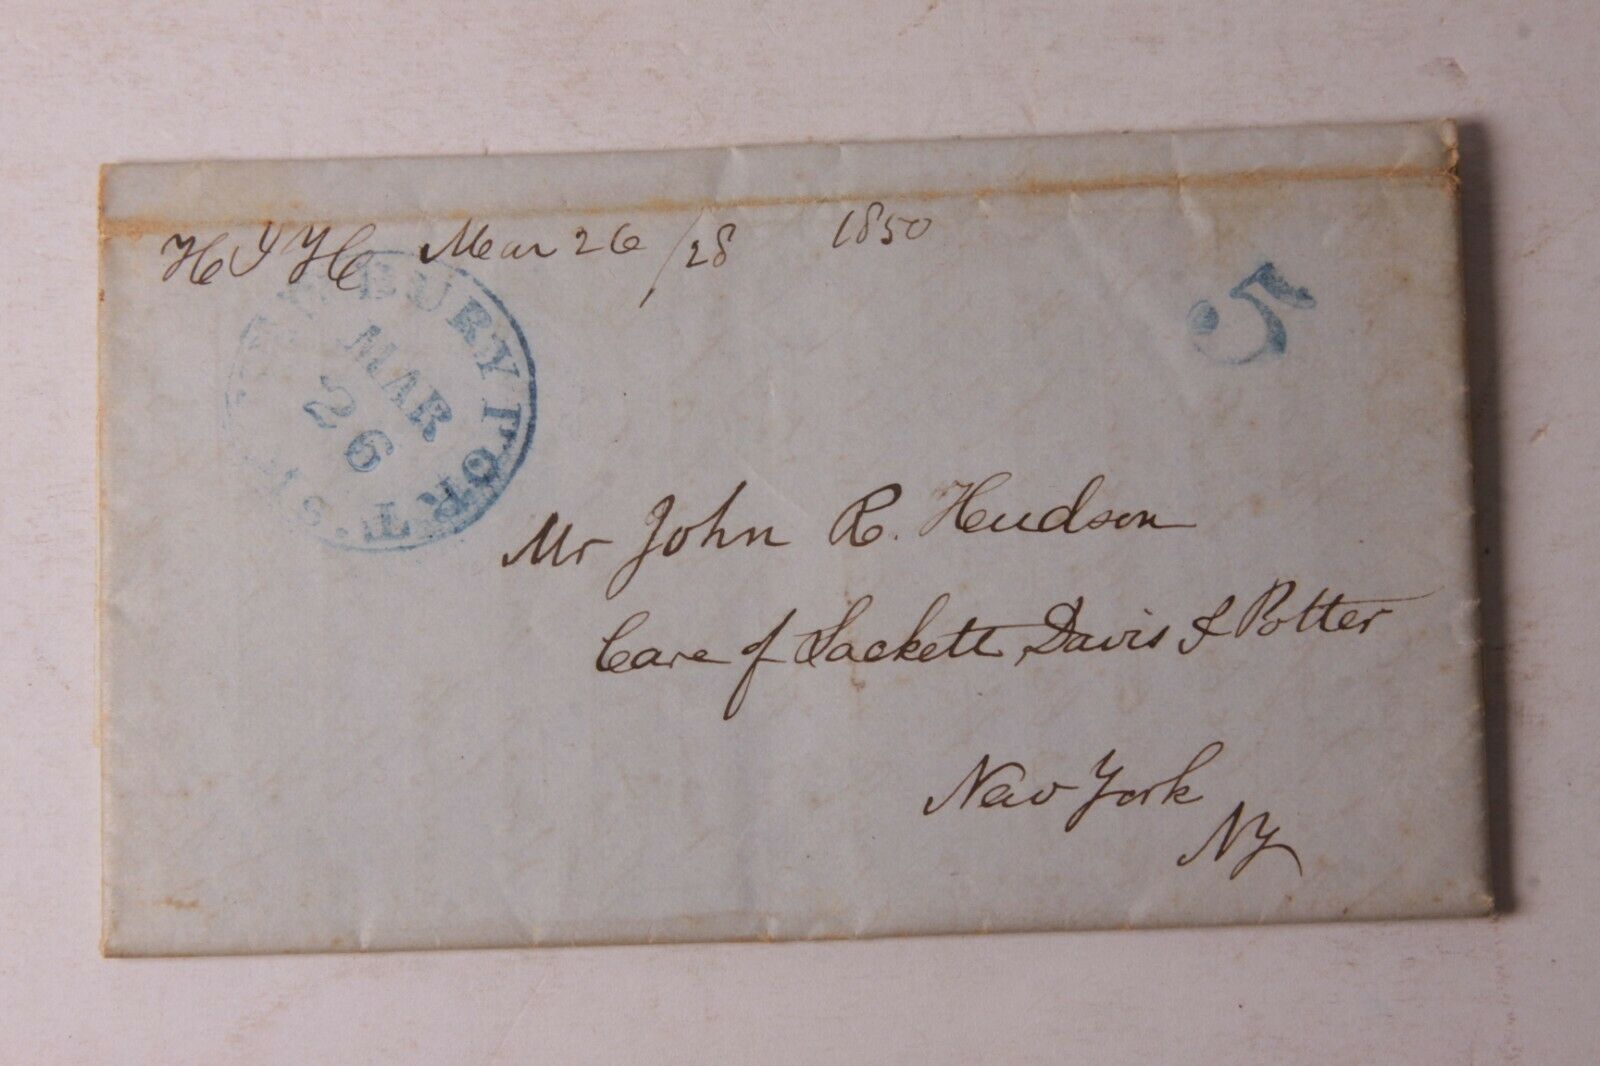 H J H Mar 26/28 1850
5
NEWBURYPORT MS.
MAR
26
Mr John R. Hudson
Care of Sackett, Davis & Potter
New York
NY